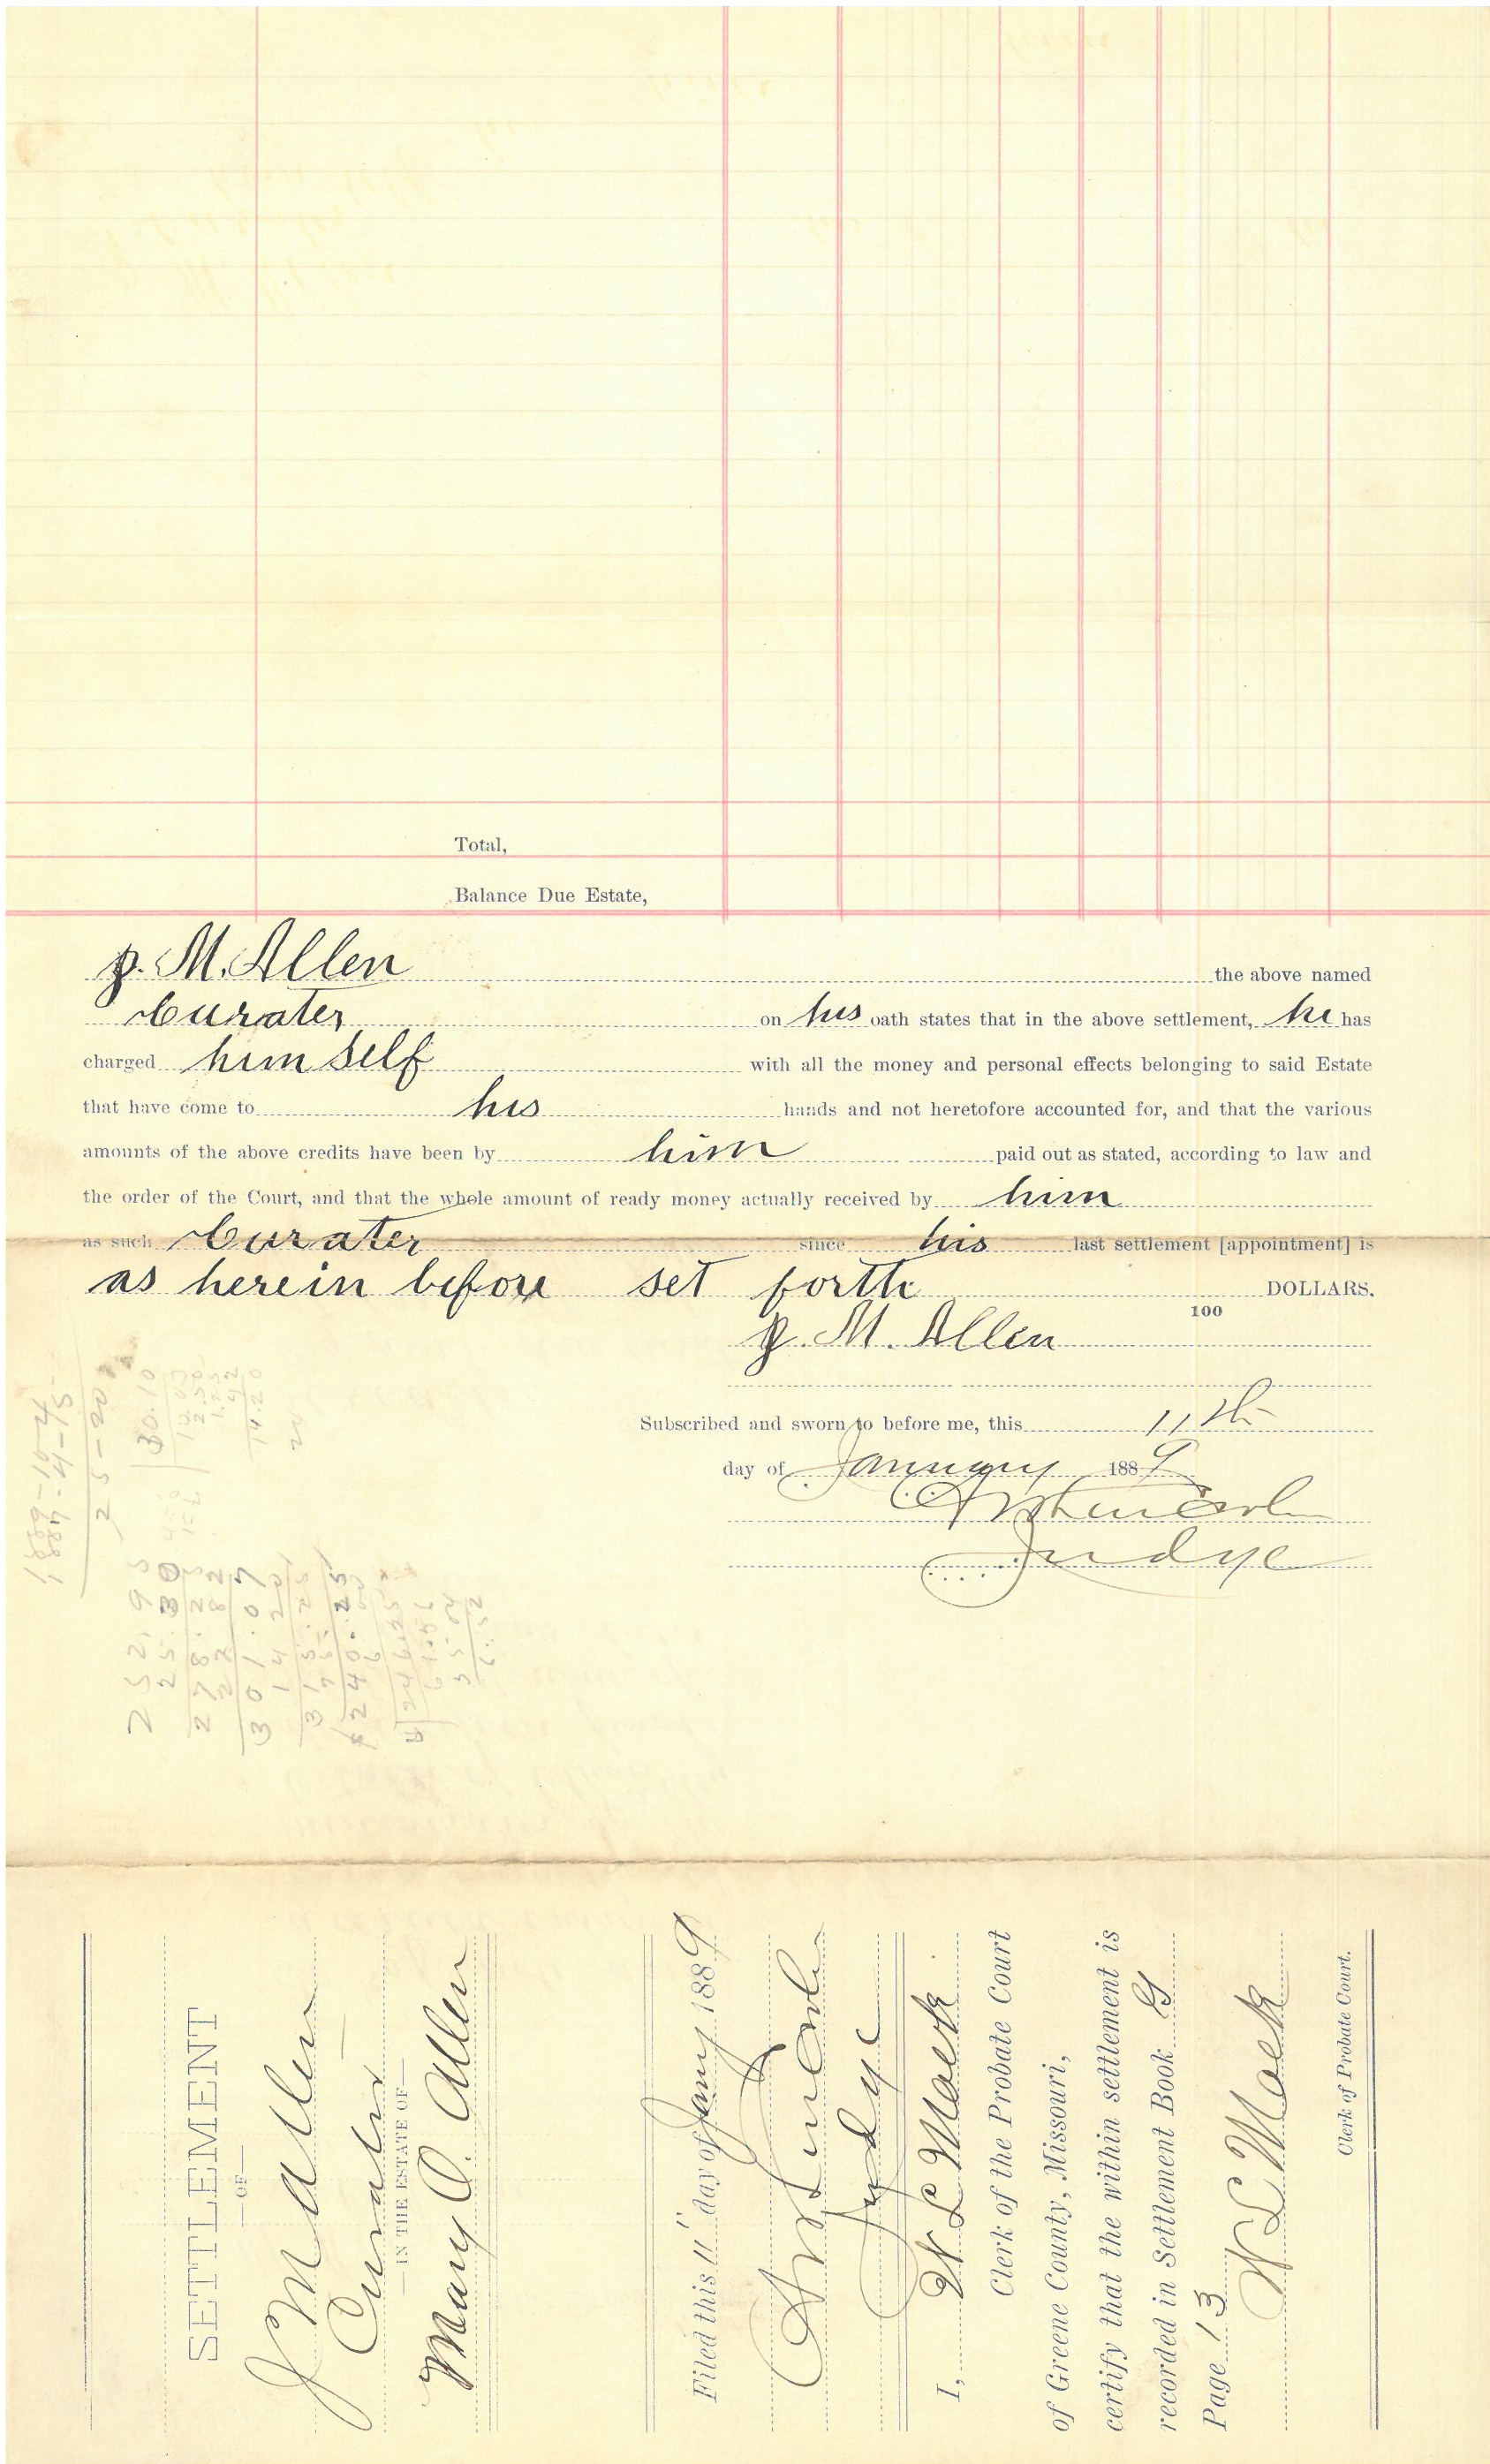 Total,
Balance Due Estate,
J. M. Allen the above named
Curater on his oath states that in the above settlement, he has
charged him self with all the money and personal effects belonging to said Estate
that have come to his hands and not heretofore accounted for, and that the various
amounts of the above credits have been by him paid out as stated, according to law and
the order of the Court, and that the whole amount of ready money actually received by him
as such Curater since his last settlement [appointment] is
as herein before set forth DOLLARS.
100
J. M. Allen
Subscribed and sworn to before me, this 11th
day of January 1889
Judge
1889-10-4
1884-4-15
SETTLEMENT
—OF—
J M Allen
Curator
—IN THE ESTATE OF—
Mary O. Allen
Filed this 11" day of Jany 1889
Judge
I, W L Mack
Clerk of the Probate Court
of Greene County, Missouri,
certify that the within settlement is
recorded in Settlement Book G
Page 13
W L Mack
Clerk of Probate Court.